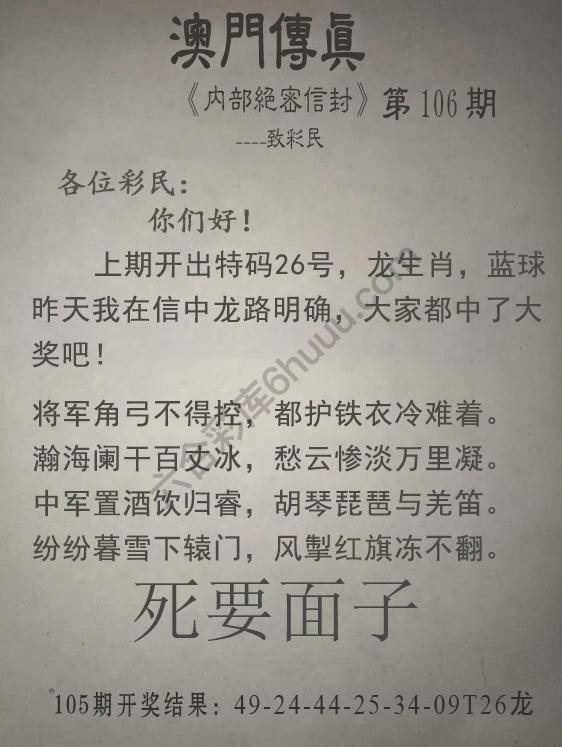 澳門傳眞
《内部絕密信封》第106期
----致彩民
各位彩民：
你们好！
上期开出特码26号，龙生肖，蓝球
昨天我在信中龙路明确，大家都中了大
奖吧！
将军角弓不得控，都护铁衣冷难着。
瀚海阑干百丈冰，愁云惨淡万里凝。
中军置酒饮归睿，胡琴琵琶与羌笛。
纷纷暮雪下辕门，风掣红旗冻不翻。
死要面子
105期开奖结果：49-24-44-25-34-09T26龙
六合彩库6huuu.com